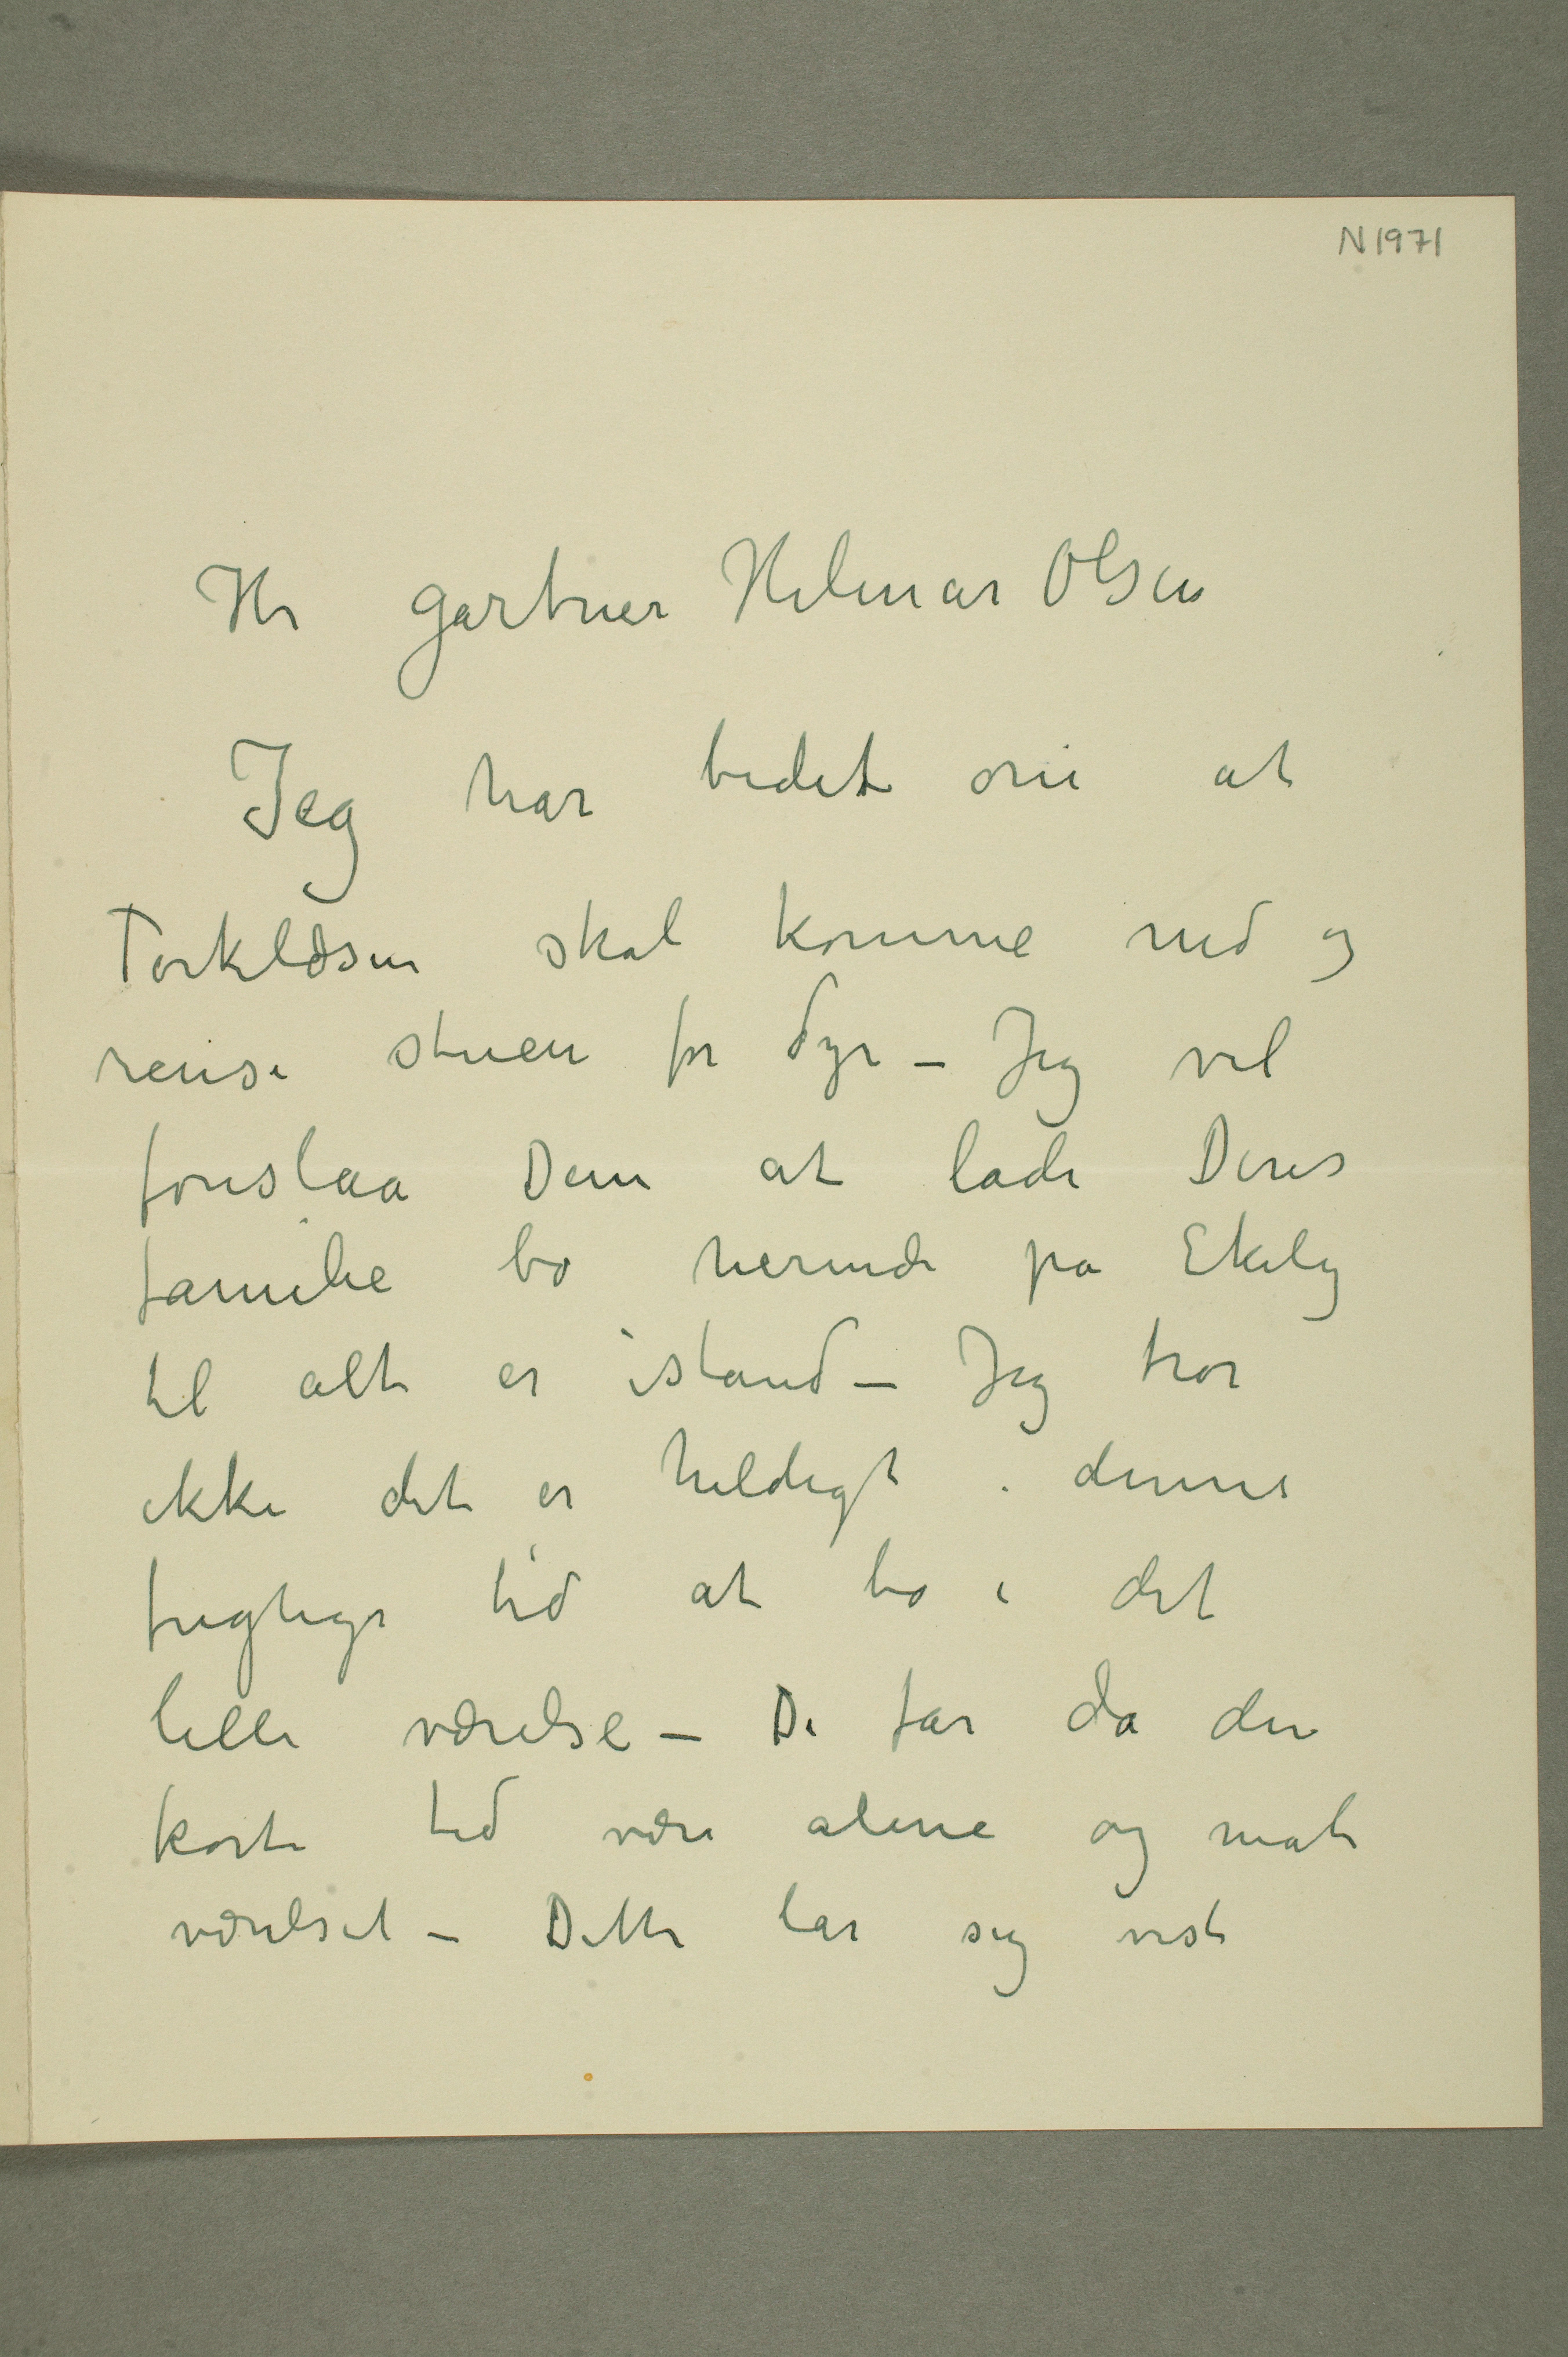 N1971
Hr gartner Hilmar Olsen
Jeg har bedet om at
Torkildsen skal komme ned og
rense stuen for dyr – Jeg vil
foreslaa Dem at lade Deres
familie bo herinde pa Ekely
til alt er istand – Jeg tror
ikke det er heldigt i denne
fugtige tid at bo i det
lille værelse – De far da den
korte tid være alene og mate
værelset – Dette lar sig vist